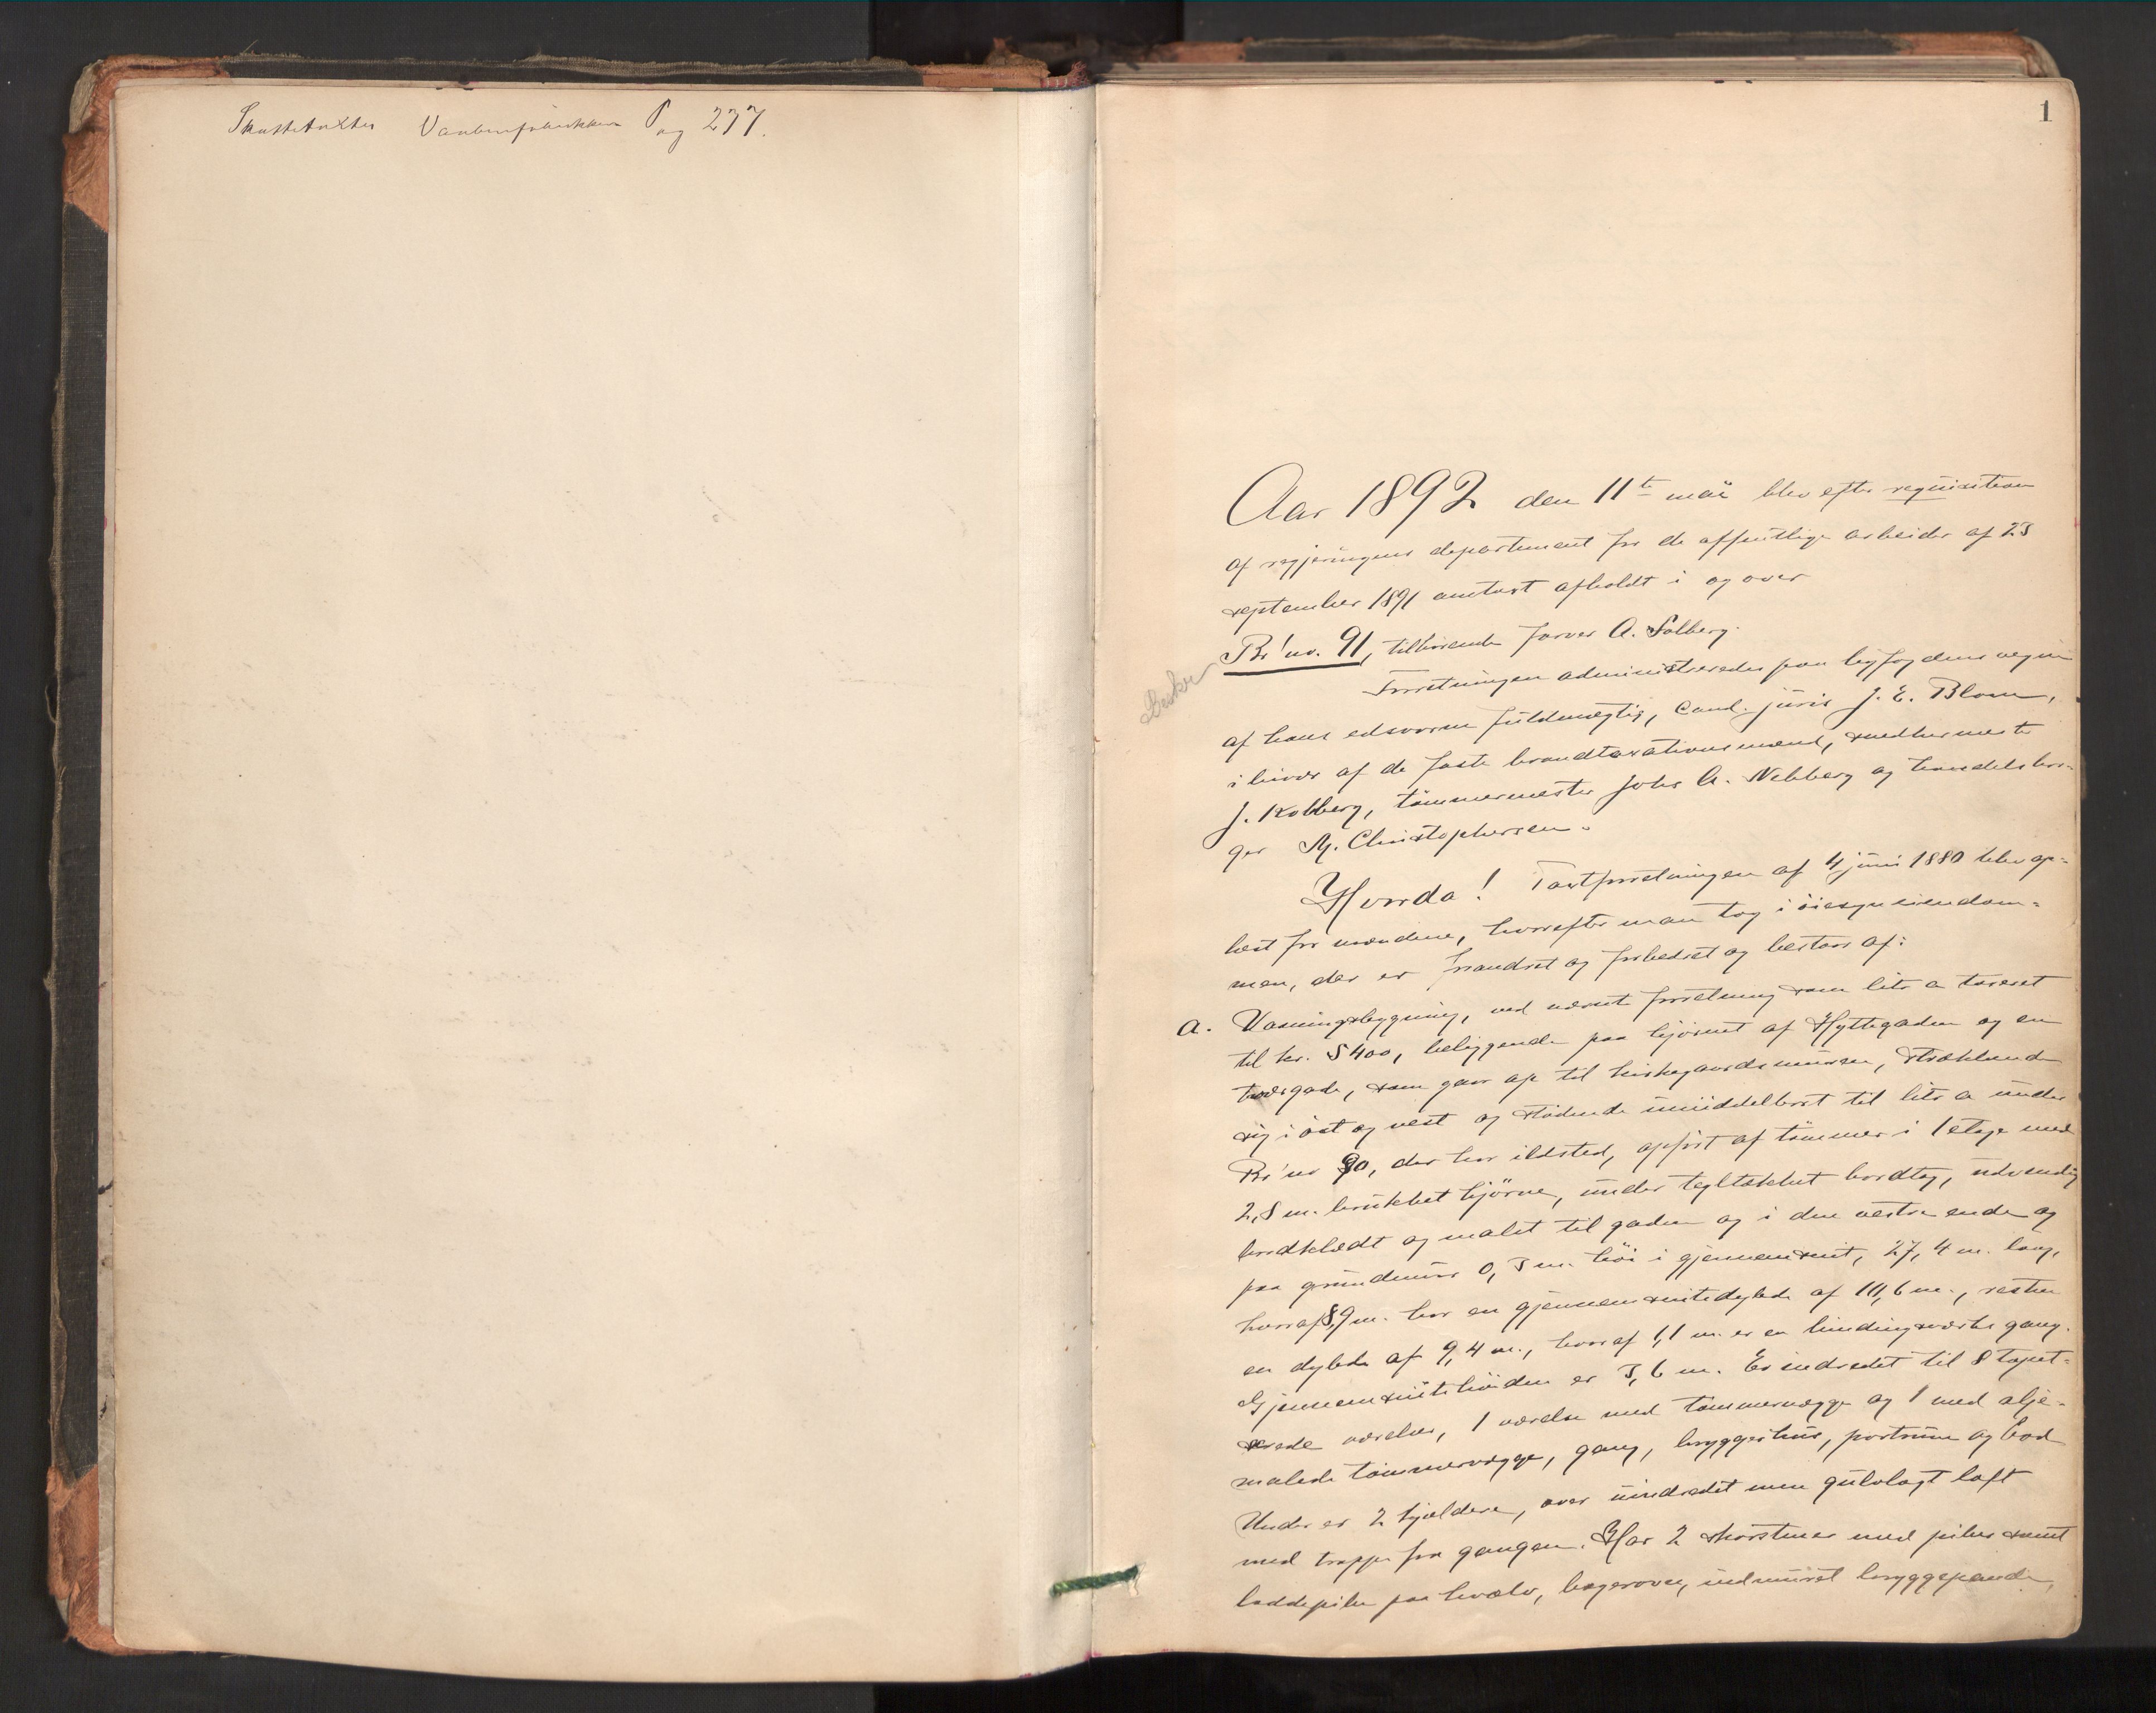 Skattetakster Pag 237.
1
Aar 1892 den 11te mai blev efter requisition
af regjeringens departement for de offentlige arbeider af 23
september 1891 omtaxt afholdt i og over
Br'no. 91, tilhörende farver A. Solberg.
Forretningen administreredes paa byfogdens vegne
af hans edsvorne fuldmægtig, Cand. juris J. E. Blom,
i hivær af de faste brandtaxationsmænd, smedhermester
J. Kolberg, tömmermester Johs A. Nebberg og handelsbor-
ger M. Christophersen.
Hvorda! Taxtforretningen af 4 juni 1880 blev op-
læst for mændene, hvorefter man tog i öiesyn eiendom-
men, der er forandret og forbedret og bestaar af:
a. Vaaningsbygning, ved nævnte forretning som litr a taxeret
til kr. 5400, beliggende paa hjörnet af Hyttegaden og en
tværgade, som gaar op til kirkegaardsmuren, strækkende
sig i öst og vest og stödende umiddelbart til litr a under
Br'no 90, der har ildsted, opfört af tömmer i 1 etage med
2,8 m. brukket hjörne, under tegltækket bordtag, udvendig
bordklædt og malet til gaden og i den vestre ende og
paa grundmur 0,3 m. höi i gjennemsnit, 27,4 m. lang,
hvoraf 8,9 m. har en gjennemsnitsdybde af 10,6 m., resten
en dybde af 9,4 m., hvoraf 1,1 m. er en bindingsværks gang.
Gjennemsnitshöiden er 3,6 m. Er indredet til 8 tapet-
serede værelser, 1 værelse med tömmervægge og 1 med olje-
malede tömmervægge, gang, bryggerhus, portrum og bod
Under er 2 kjældere, over uindredet men gulvlagt loft
med trappe fra gangen. Har 2 skorstene med piber samt
loddepibe paa hvælv, bagerovn, indmuret bryggepande,